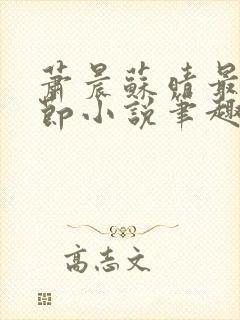 蕭晨蘇晴最
節小說筆趣
高志文